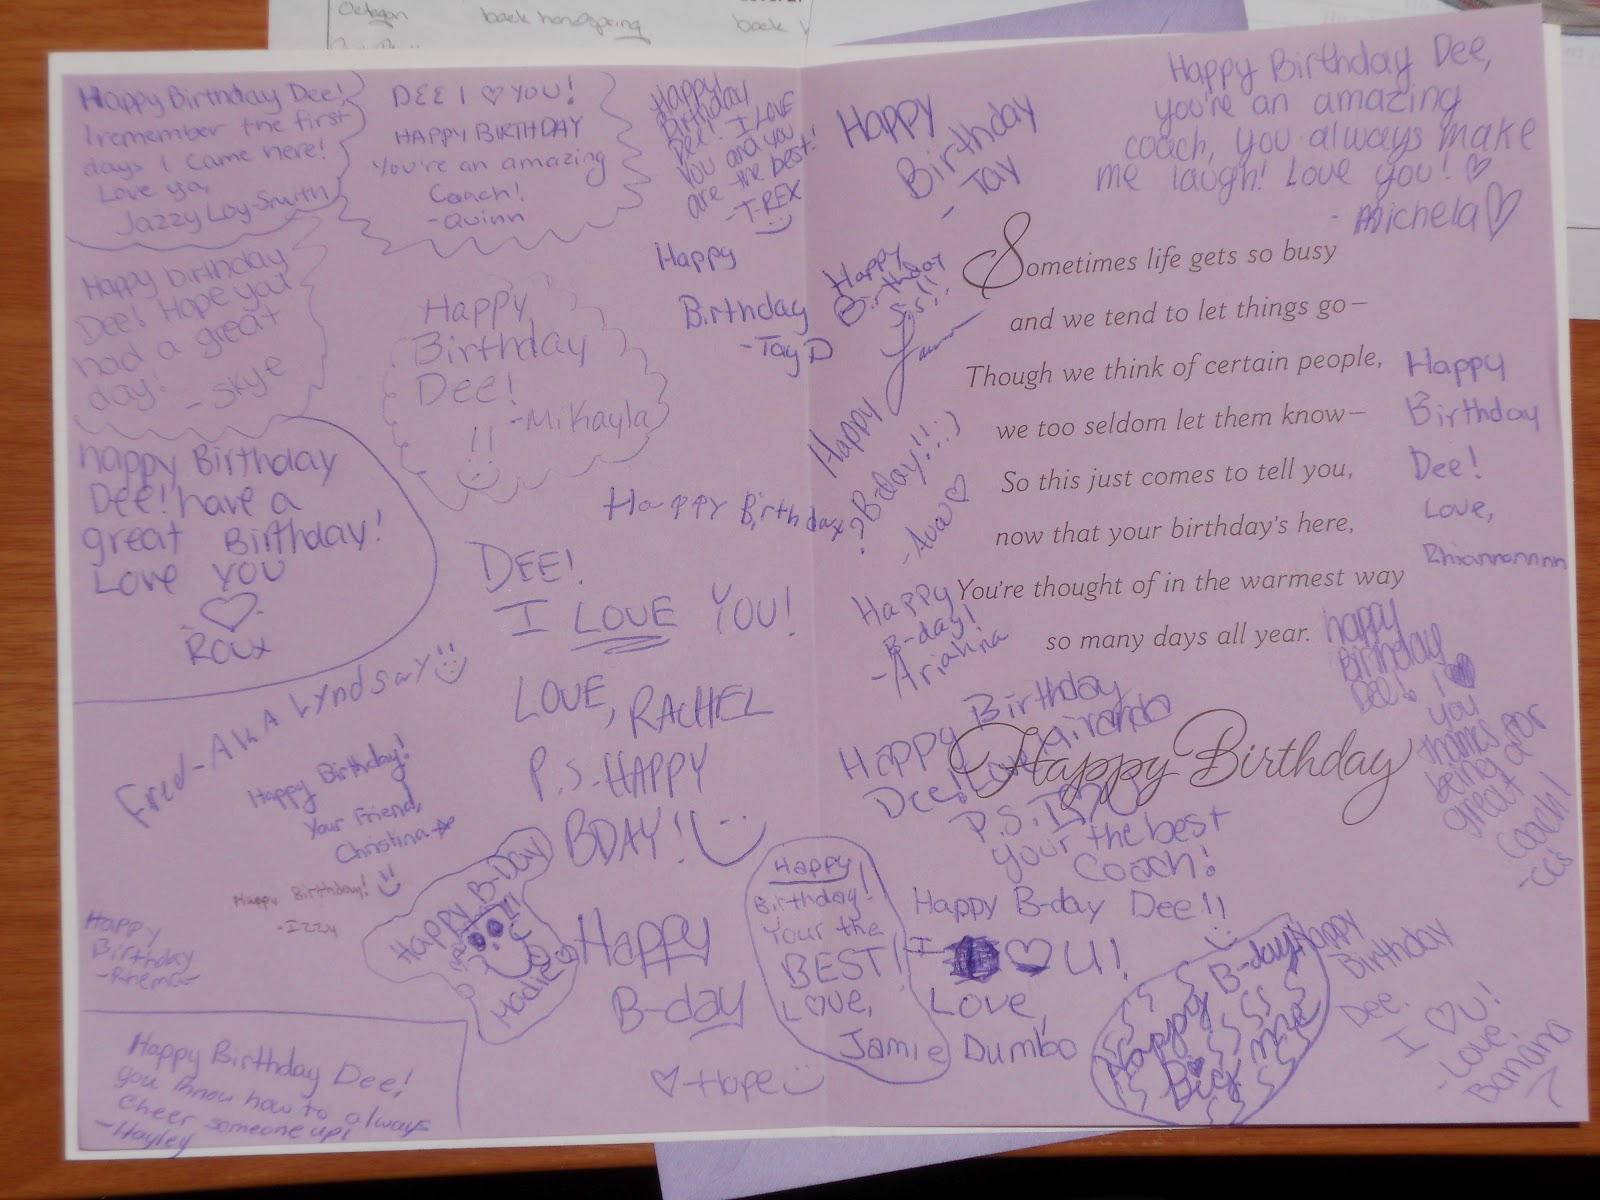 Octagon
back handspring
back
Happy Birthday Dee!
I remember the first
days I came here!
Love ya,
Jazzy Loy-Smith
DEE I ♡ YOU!
HAPPY BIRTHDAY
You're an amazing
Coach!
-Quinn
Happy
Birthday
Dee! I LOVE
You and you
are the best!
-T-REX
Happy
Birthday
-Tay
Happy Birthday Dee,
you're an amazing
coach, you always make
me laugh! Love you! ♡
- Michela ♡
Happy birthday
Dee! Hope you
had a great
day!
-Skye
Happy
Birthday
Dee!
-Mikayla
!!
Happy
Birthday
-Tay D
Happy
Birthday
Sometimes life gets so busy
and we tend to let things go—
Though we think of certain people,
we too seldom let them know—
So this just comes to tell you,
now that your birthday's here,
You're thought of in the warmest way
so many days all year.
Happy Birthday
Happy
Birthday
Dee!
Love,
Rhiannonnnn
happy Birthday
Dee! have a
great Birthday!
Love YOU
♡
Roux
Happy
B-day!!! :)
-Ava ♡
Happy Birthday
DEE!
I LOVE YOU!
LOVE, RACHEL
P.S.-HAPPY
BDAY!
Happy
B-day!
-Arianna
Fred-AKA Lyndsay
Happy Birthday!
Your Friend,
Christina
Happy Birthday!
-Izzy
Happy
Birthday
-Rhema-
Happy Birthday
Dee! Love Miranda
P.S. I ♡ U
your the best
Coach!
happy
Birthday
Dee! I ♡
you
thanks
being a
great
Coach!
Happy B-Day
Madie
Happy
B-day
♡-Hope
Happy
Birthday!
Your the
BEST!
Love,
Jamie
Happy B-day Dee!!
I ♡ U!
Love,
Dumbo
Happy B-day
Happy
Birthday
Dee.
I ♡ U!
-Love,
Banana
Happy Birthday Dee!
you know how to always
cheer someone up!
-Hayley